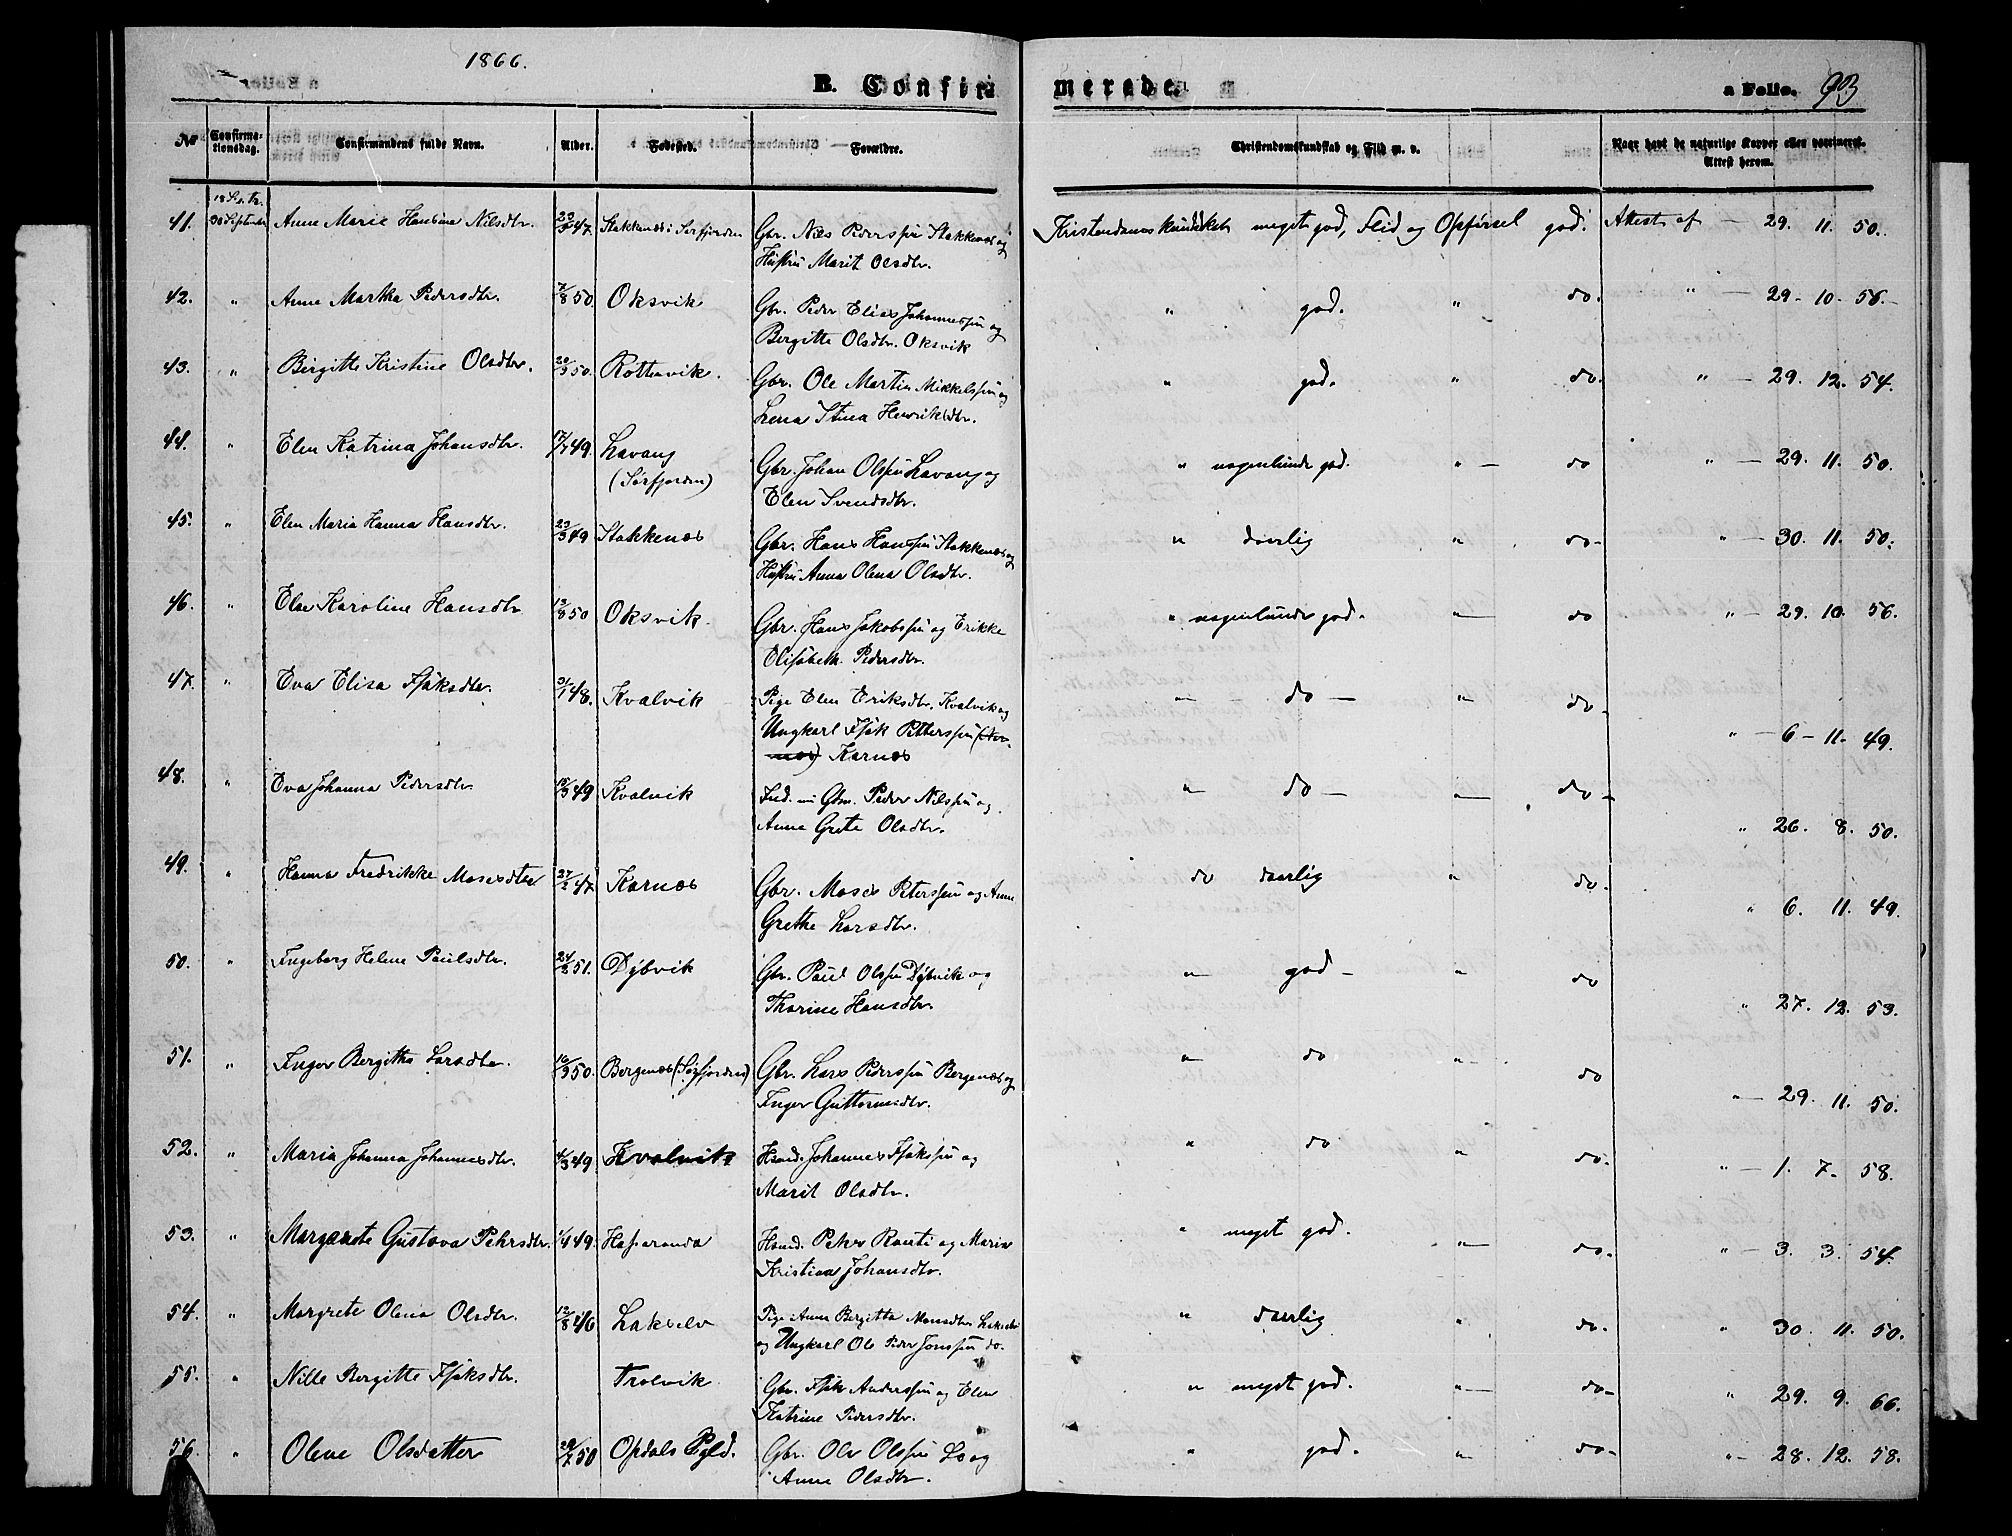 1866.
B. Confir merede. a Folio. 93
No Confirma-tionsdag. Confirmandens fulde Navn. Alder. Fødested. Forældre. Christendomskundskab og Flid m. v. Naar havt de naturlige Kopper eller vaccineret. Attest herom.
18 S. e. Tr.
41. 30 September Anne Marie Hansine Nilsdtr. 47. Stakkenæs i Sørfjorden Gbr. Nils Pederssøn Stakkenæs og Kristendomskundskab meget god, Flid og Opførsel god. Attest af — 29. 11. 50.
Hustru Marit Olsdtr.
42. " Anne Martha Pedersdtr. 7/8 50. Oksvik Gbr. Peder Elias Johannessøn og " god. " do. " — 29. 10. 56.
Bergitte Olsdtr. Oksvik
43. " Birgitte Kristine Olsdtr. 50. Rottenvik. Gbr. Ole Martin Mikkelssøn og " god. " do. " — 29. 12. 54.
Lena Stina Henriksdtr.
44. " Elen Katrina Johansdtr. 17/7 49. Lavang Gbr. Johan Olssøn Lavang og " nogenlunde god. " — do " — 29. 11. 50.
(Sørfjorden) Elen Svendsdtr.
45. " Elen Maria Hanna Hansdtr. 49 Stakkenæs Gbr. Hans Hanssøn Stakkenæs og " daarlig " do. " — 30. 11. 50.
Hustru Anna Olena Olsdtr.
46. " Else Karoline Hansdtr 13/8 50 Oksvik. Gbr. Hans Jakobssøn og Erikke " nogenlunde god. " — do " — 29. 10. 56.
Elisabeth Pedersdtr.
47. " Eva Elisa Isaksdtr. 48. Kvalvik Pige Elen Eriksdtr. Kvalvik og " — do — " do.
Ungkarl Isak Petterssøn (Kar- " — 6 — 11. 49.
næs) Karnæs
48. " Eva Johanna Pedersdtr. 49 Kvalvik Ind. Gbm. Peder Nilssøn og " do — " do —
Anne Grete Olsdtr. " 26. 8. 50.
49. " Hanna Fredrikke Mosesdtter 27/2 47 Karnæs Gbr. Moses Peterssøn og Anne do daarlig " do.
Grethe Larsdtr. " 6. 11. 49.
50. " Ingeborg Helene Paulsdtr. 51. Dybvik Gbr. Paul Olssøn Dybvik og " god — " do
Thorine Hansdtr. " 27. 12. 53.
51. " Inger Bergitha Larsdtr. 50. Bergenæs (Sørfjorden) Gbr. Lars Pederssøn Bergenæs og " do " do
Inger Guttormsdtr. " 29. 11. 50.
52. " Maria Johanna Johannesdtr. 49 Kvalvik Hmd. Johannes Isakssøn og " do " do.
Marit Olsdtr. " — 1. 7. 58.
53. " Margarete Gustava Pehrsdtr. 49. Haparanda Hmd. Peter Rauti og Maria " meget god. " do.
Kristina Johansdtr. " — 3. 3. 54.
54. " Margrete Olena Olsdtr. 12/8 46 Lakselv Pige Anne Bergitta Monsdtr. Lakselv " daarlig " do.
og Ungkarl Ole Peder Jonssøn do. " 30. 11. 50.
55. " Nille Bergitte Isaksdtr. Trolvik Gbr. Isak Anderssøn og Elen " meget god. " — do. " 29. 9. 66.
Katrine Pedersdtr.
56. " Olene Olsdatter 50 Opdals Pgld. Gbr. Ole Olssøn Lo og " god. " do. " 28. 12. 58.
Anne Olsdtr.